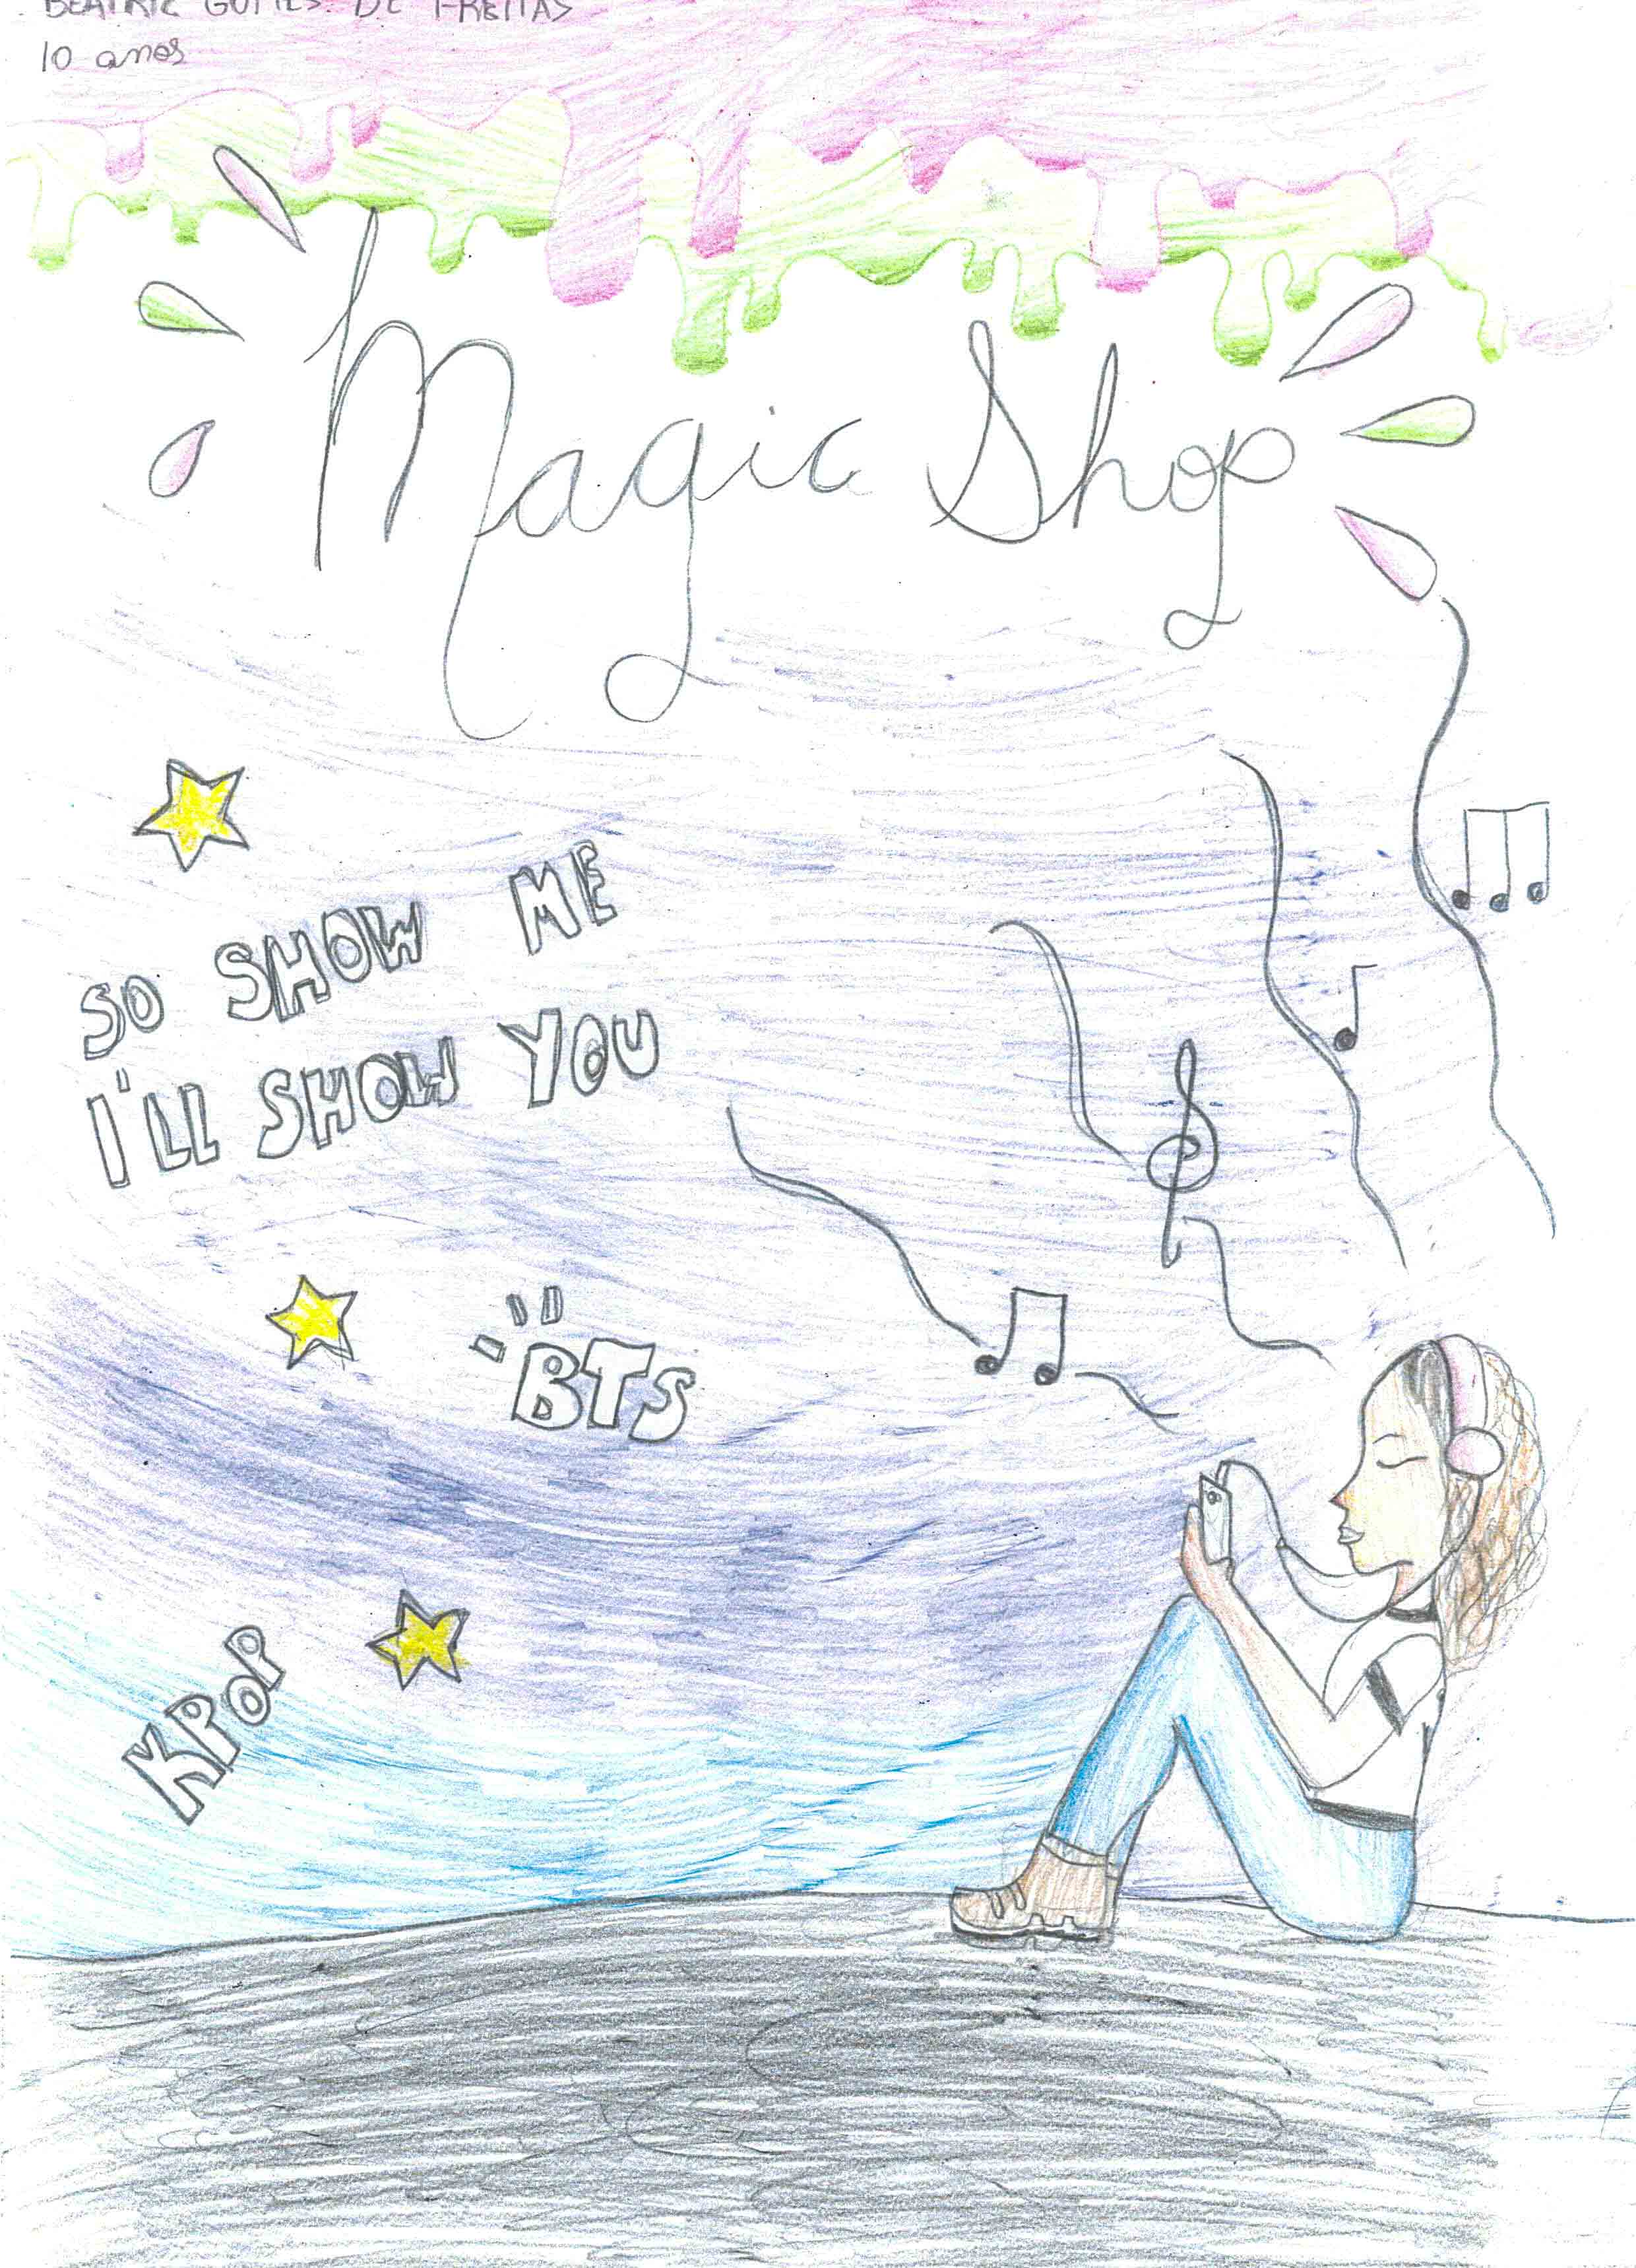 BEATRIZ GOMES DE FREITAS
10 anos
Magic Shop
SO SHOW ME
I'LL SHOW YOU
BTS
KPOP